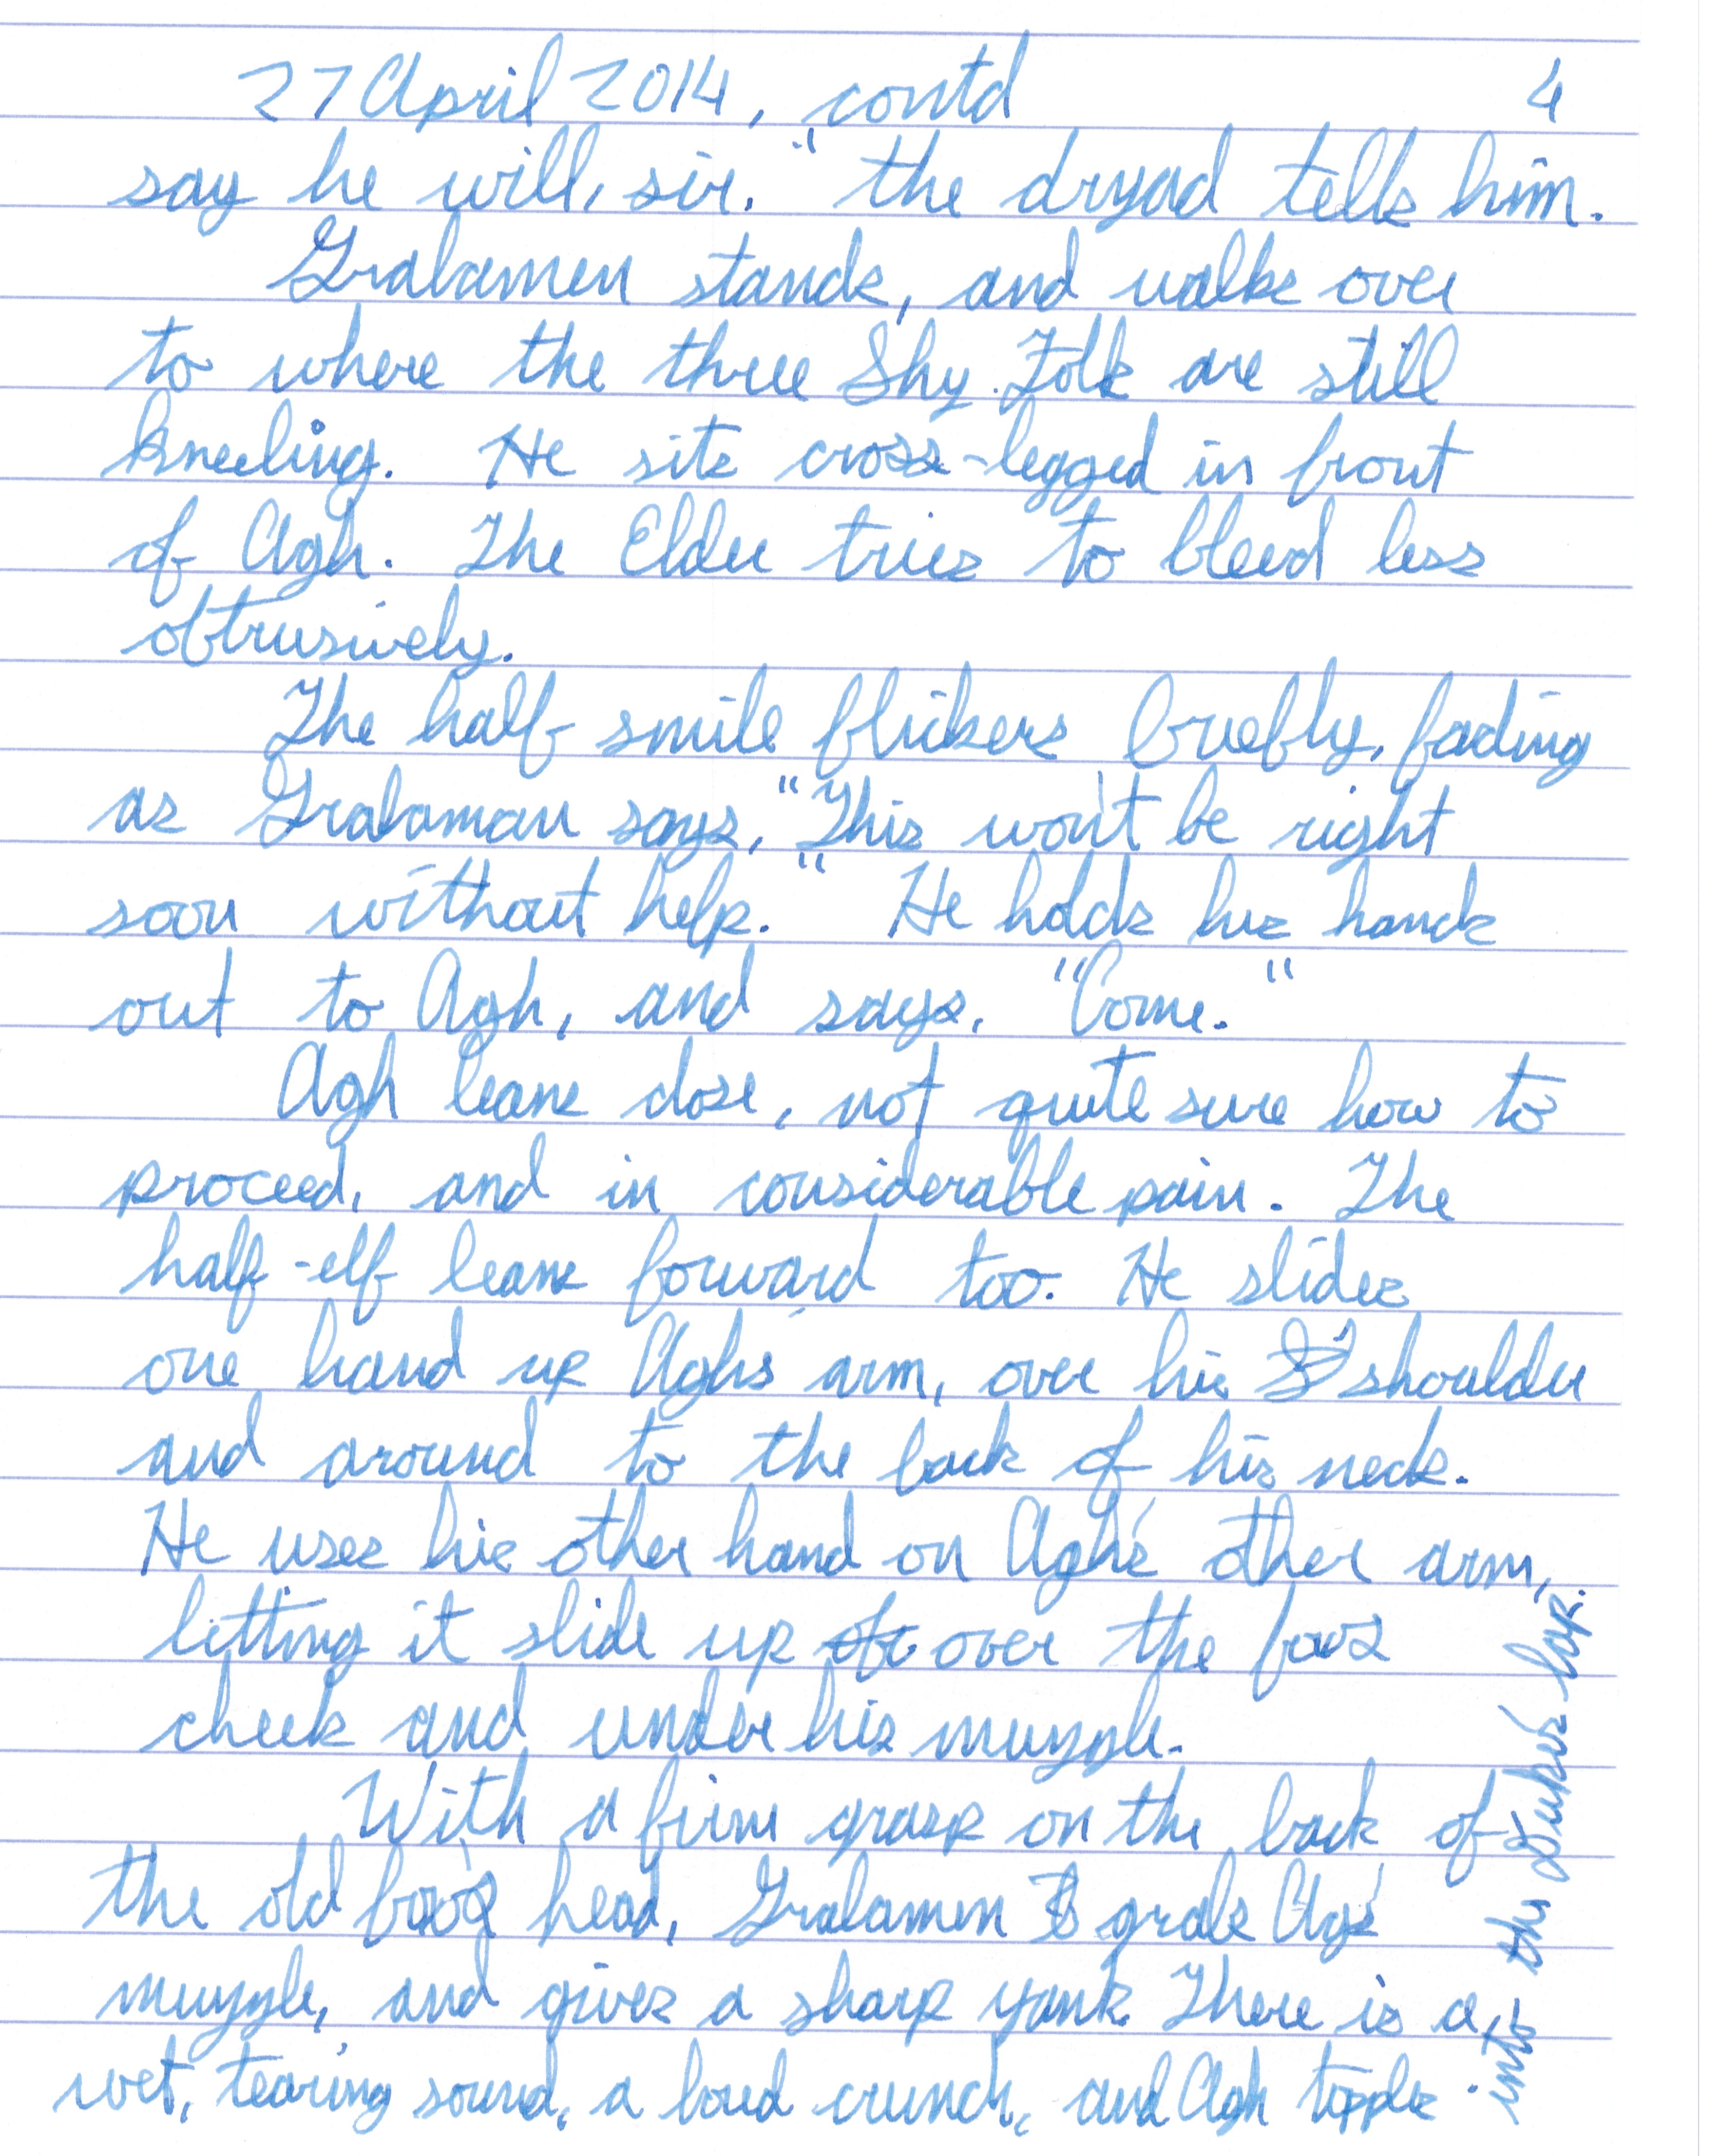 27 April 2014, contd 4
say he will, sir." the dryad tells him.
Gralamen stands, and walks over
to where the three Shy Folk are still
kneeling. He sits cross-legged in front
of Agh. The Elder tries to bleed less
obtrusively.
The half smile flickers briefly, fading
as Gralaman says, "This won't be right
soon without help." He holds his hands
out to Agh, and says, "Come."
Agh leans close, not quite sure how to
proceed, and in considerable pain. The
half-elf leans forward too. He slides
one hand up Agh's arm, over his shoulder
and around to the back of his neck.
He uses his other hand on Agh's other arm,
letting it slide up over the fox's
cheek and under his muzzle.
With a firm grasp on the back of
the old fox's head, Gralamen grabs Ag's
muzzle, and gives a sharp yank. There is a
wet, tearing sound, a loud crunch, and Agh topples
into the Duke's lap.